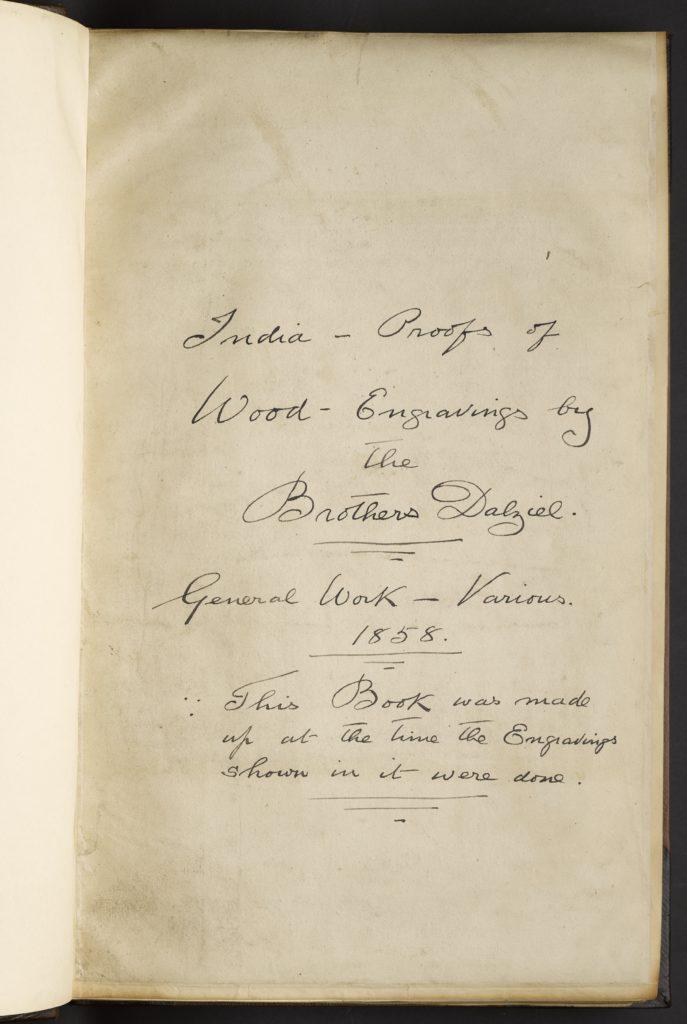 India - Proofs of
Wood - Engravings by
the
Brothers Dalziel.
General Work - Various.
1858.
∵ This Book was made
up at the time the Engravings
shown in it were done.